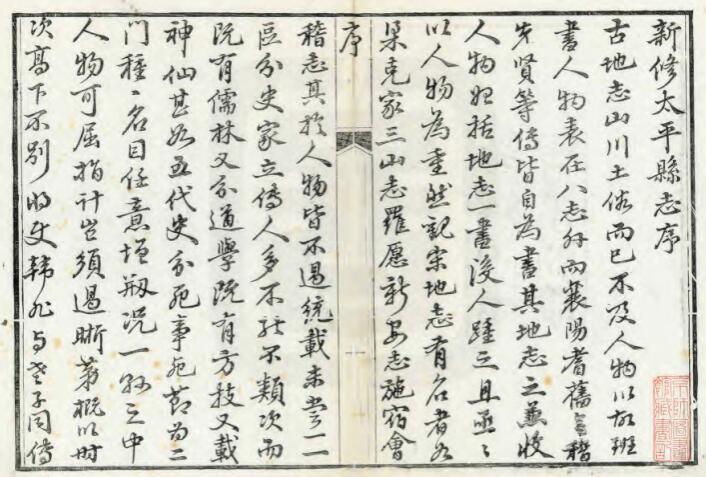 新修太平縣志序
古地志山川土俗而已不及人物以故班
書人物表在八志外而襄陽耆舊會稽
先賢等傳皆自為書其地志之兼收
人物始括地志一書後人踵之且亟亟
以人物為重然觀宋地志有名者如
梁克家三山志羅愿新安志施宿會
序
稽志其於人物皆不過統載未嘗一一
區分史家立傳人多不能不類次而
既有儒林又分道學既有方技又載
神仙甚如五代史分死事死節為二
門種種名目任意增刱況一縣之中
人物可屈指計豈須過晰第概以時
次高下不別將史韓非與老子同傳